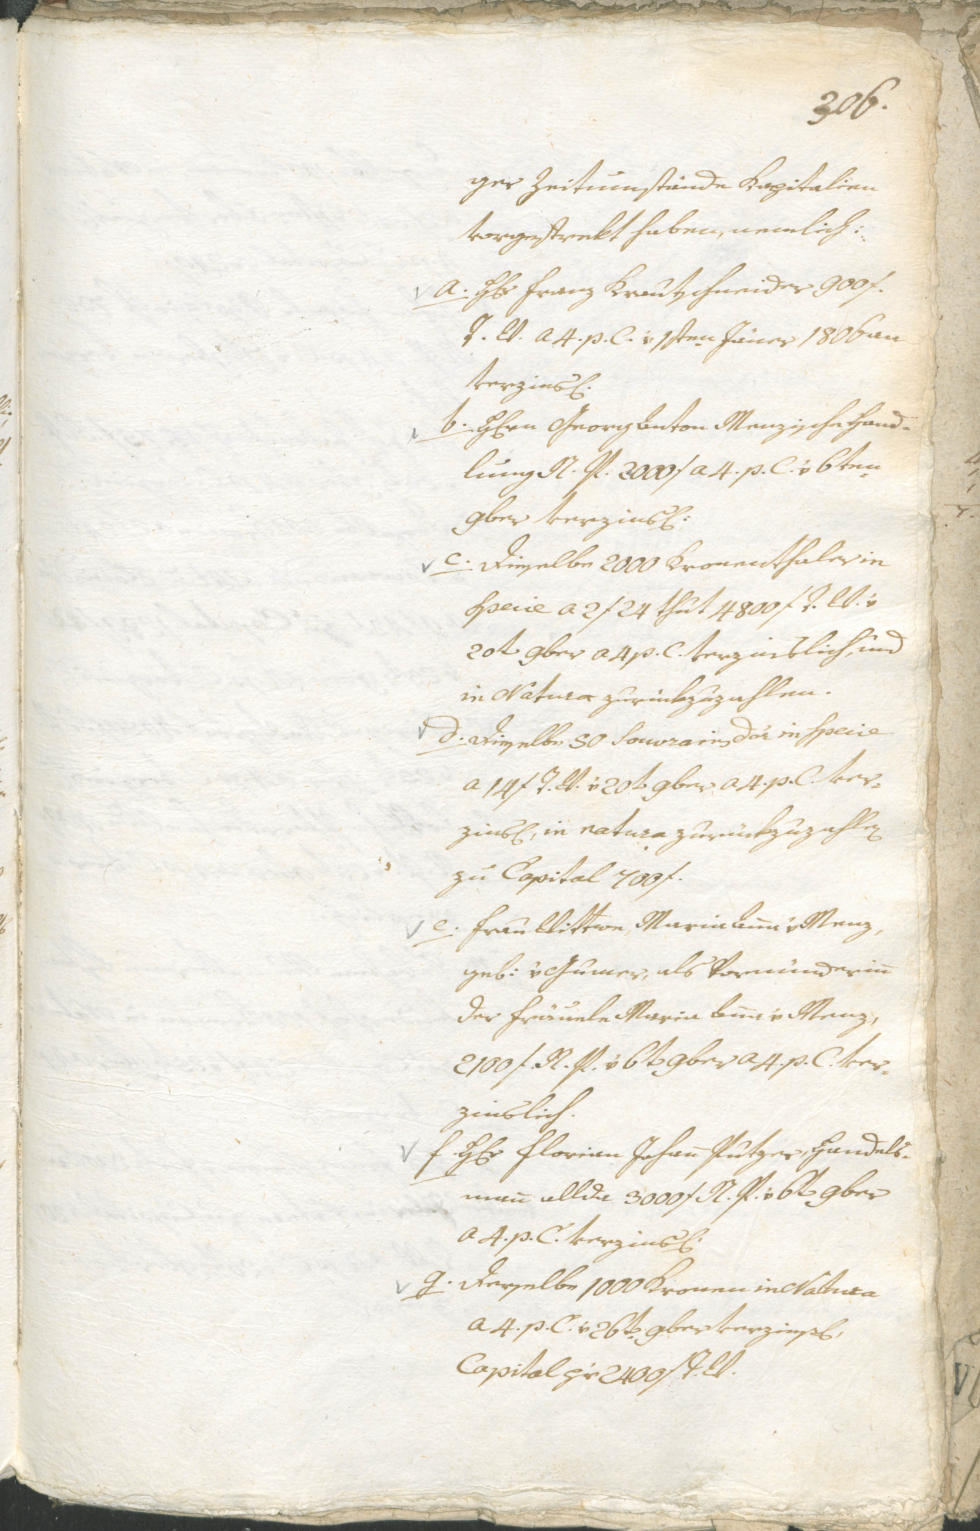 306.
ger Zeitumstände Kapitalien
vorgestrekt haben, nemlich:
a. Hr Franz Krautschneider 900f.
T. W. a 4. p. C. v 1sten Jäner 1806 an
verzinsl:
b. Hrn Georg Anton Menzische Hand-
lung R. W. 2000f a 4. p. C. v 6ten
9ber verzinsl:
c. Dieselbe 2000 Kronenthaler in
Specie a 2f 24 thut 4800f T. W. v
20t 9ber a 4 p. C. verzinslich, und
in Natura zurückzuzahlen.
d. Dieselbe 50 Souvrains dór in Specie
a 14f T. W. v 20t 9ber, a 4. p. C. ver-
zinsl, in natura zurückzuzahlen
zu Capital 700f.
e. Frau Wittwe Maria Anna v Menz,
geb: v Gumer, als Vormünderin
der Fräuele Maria Anna v Menz,
2100f. R. W. v 6t 9ber a 4. p. C. ver-
zinslich.
f Hr Florian Johann Putzer, Handels-
mann allda 3000f R. W. v 6t 9ber
a 4. p. C. verzinsl:
g. Derselbe 1000 Kronen in Natura
a 4. p. C. v 26t 9ber verzinsl,
Capital pr 2400f T. W.